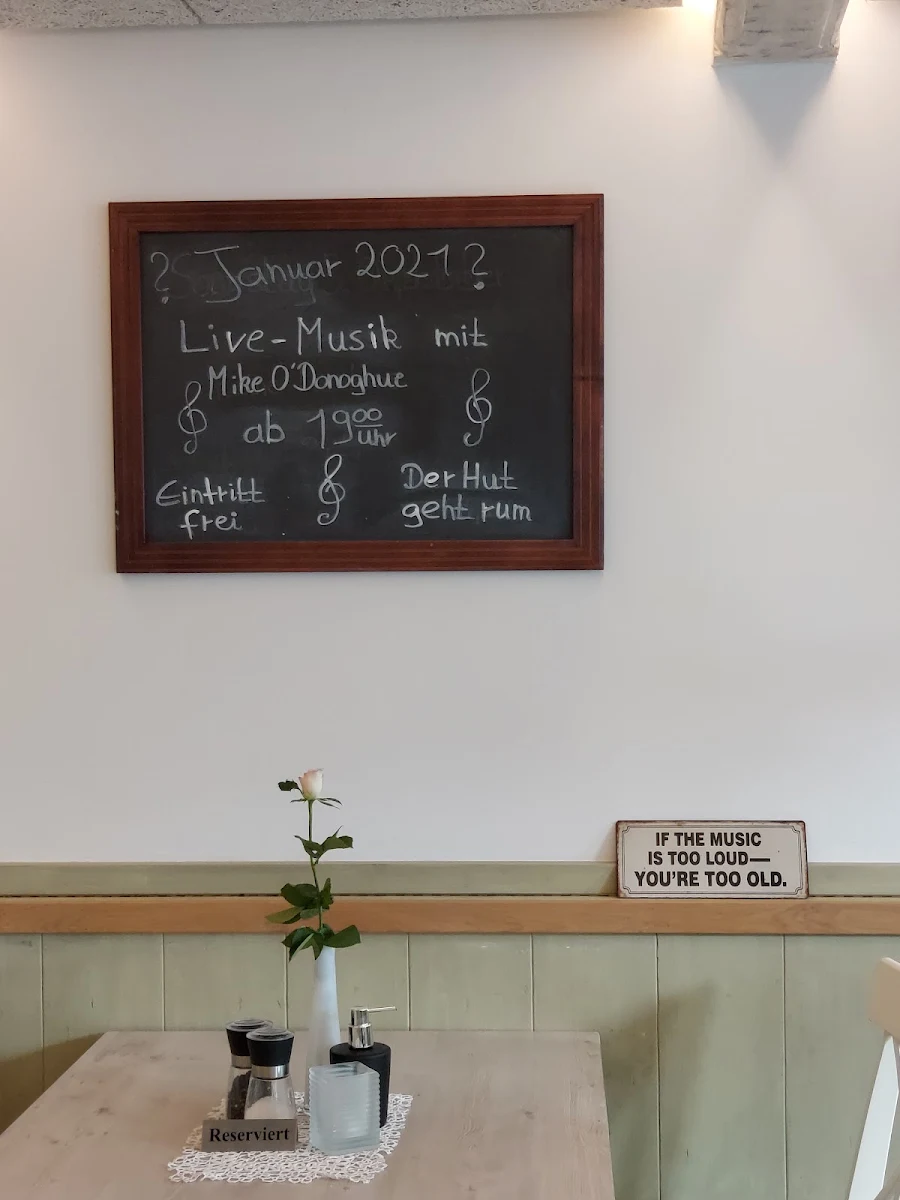 ? Januar 2021 ?
Live-Musik mit
Mike O'Donoghue
ab 19 00 Uhr
Eintritt
frei
Der Hut
geht rum
IF THE MUSIC
IS TOO LOUD—
YOU'RE TOO OLD.
Reserviert